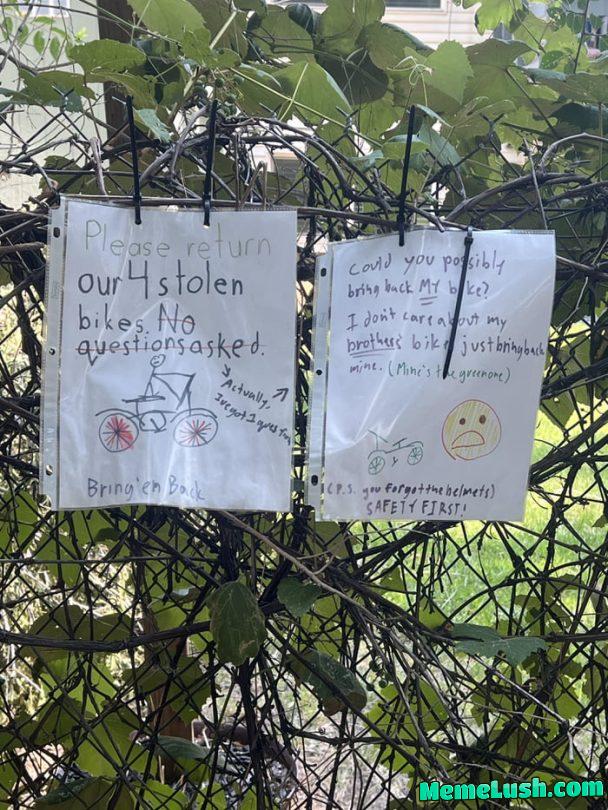 Please return
our 4 stolen
bikes. No
questions asked.
Actually,
I've got 1 question
Bring 'en Back
could you possibly
bring back MY bike?
I don't care about my
brothers' bike, just bring back
mine. (Mine's the green one)
(P.S. you forgot the helmets)
SAFETY FIRST!
MemeLush.com